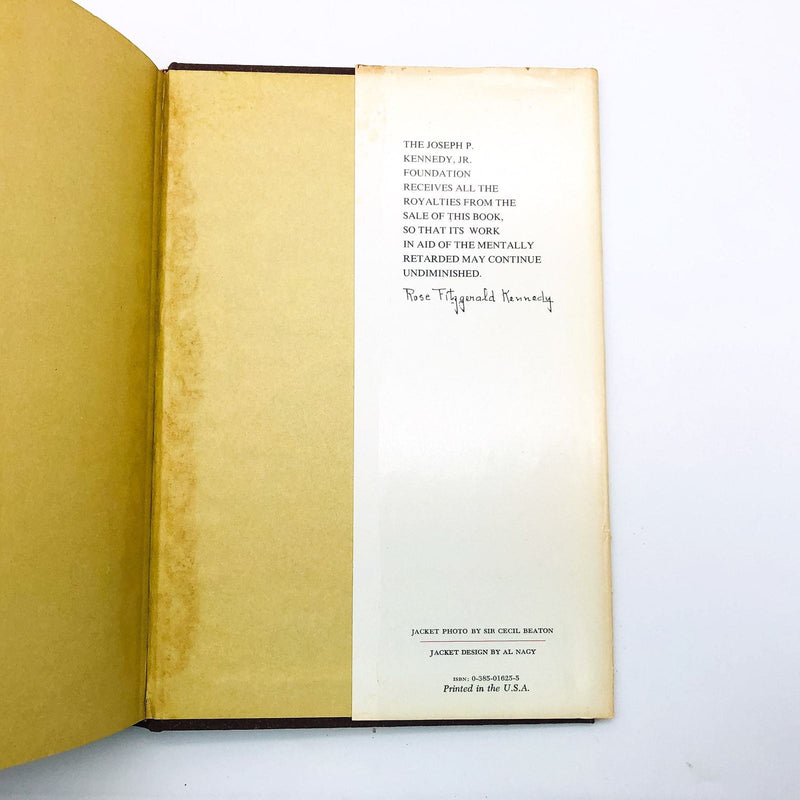 THE JOSEPH P.
KENNEDY, JR.
FOUNDATION
RECEIVES ALL THE
ROYALTIES FROM THE
SALE OF THIS BOOK,
SO THAT ITS WORK
IN AID OF THE MENTALLY
RETARDED MAY CONTINUE
UNDIMINISHED.
Rose Fitzgerald Kennedy
JACKET PHOTO BY SIR CECIL BEATON
JACKET DESIGN BY AL NAGY
ISBN: 0-385-01625-5
Printed in the U.S.A.